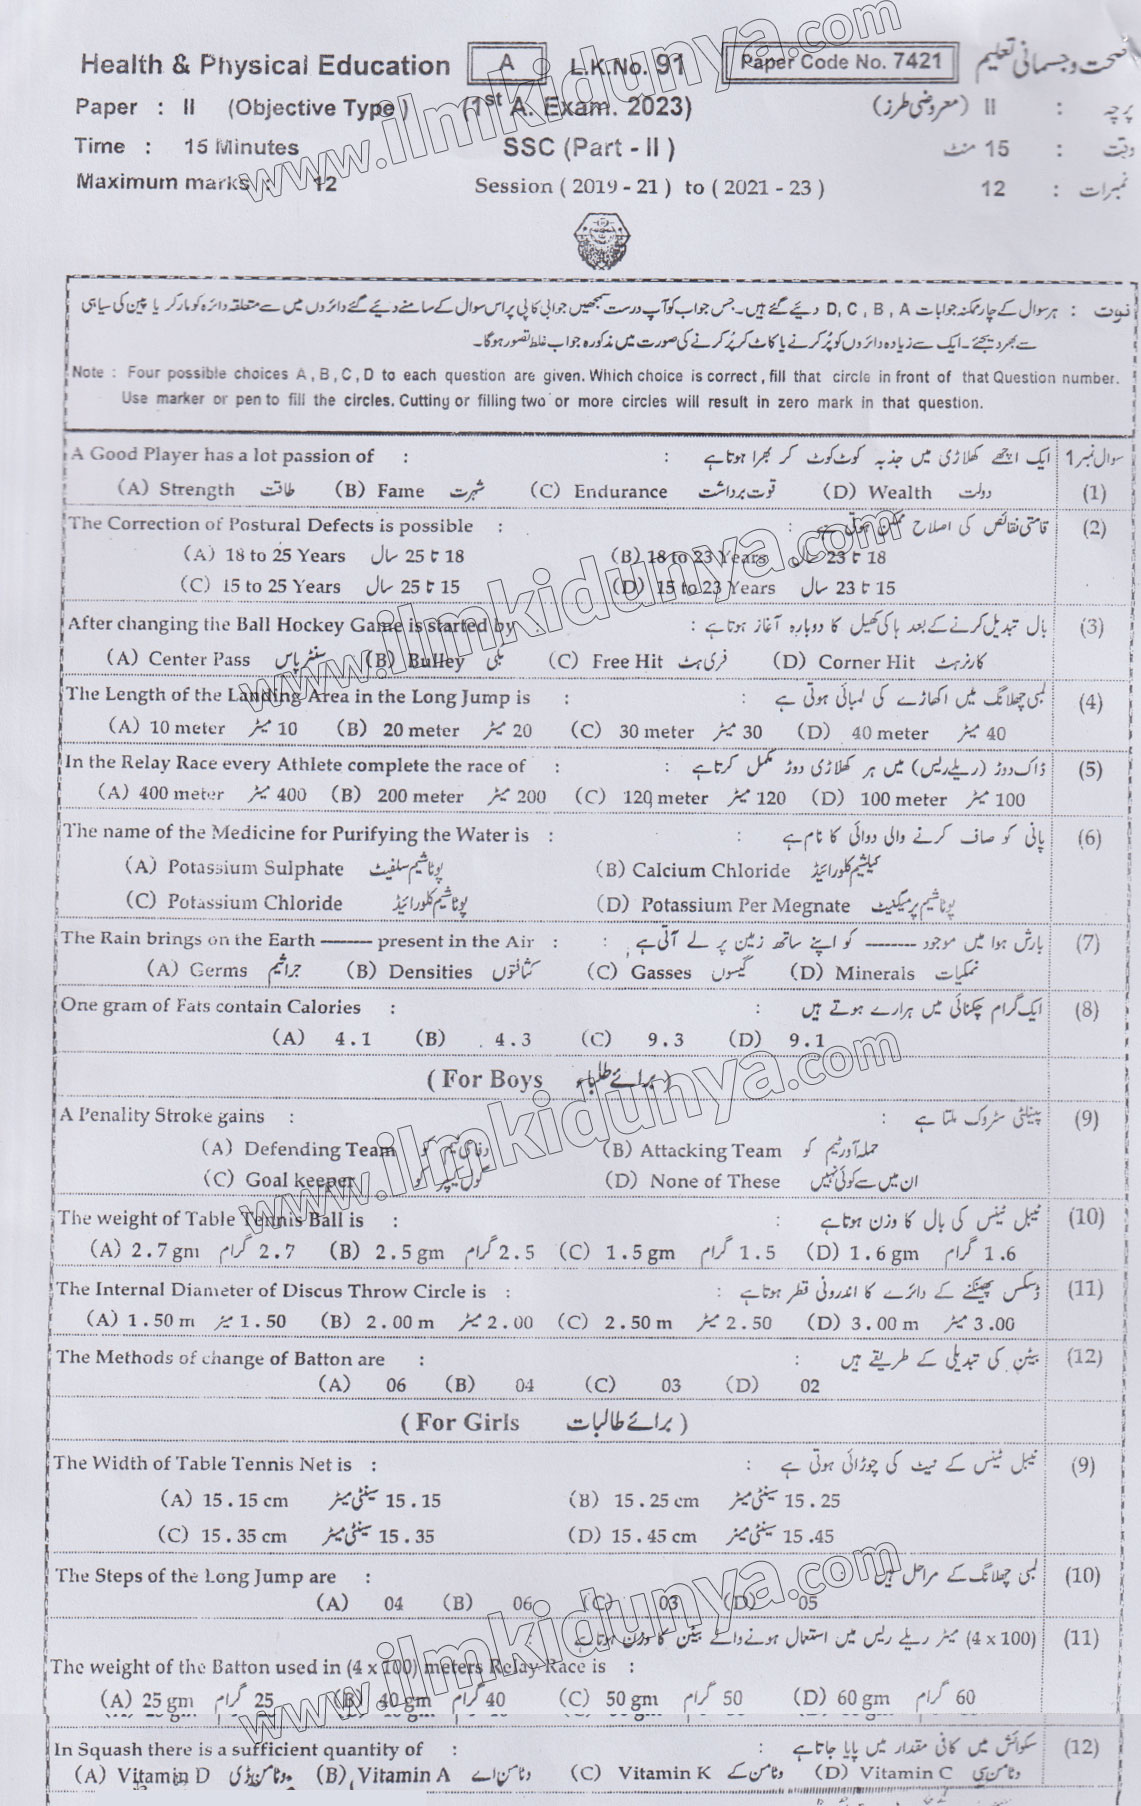 Health & Physical Education A L.K.No. 91 Paper Code No. 7421 صحت و جسمانی تعلیم
Paper : II (Objective Type) (1st A. Exam. 2023) پرچہ : II (معروضی طرز)
Time : 15 Minutes SSC (Part - II) وقت : 15 منٹ
Maximum marks : 12 Session (2019 - 21) to (2021 - 23) نمبرات : 12
نوٹ : ہر سوال کے چار ممکنہ جوابات D, C, B, A دیے گئے ہیں۔ جس جواب کو آپ درست سمجھیں جوابی کاپی پر اس سوال کے سامنے دیے گئے دائروں میں سے متعلقہ دائرہ کو مارکر یا پین کی سیاہی
سے بھر دیجئے۔ ایک سے زیادہ دائروں کو پُر کرنے یا کاٹ کر پُر کرنے کی صورت میں مذکورہ جواب غلط تصور ہوگا۔
Note : Four possible choices A, B, C, D to each question are given. Which choice is correct, fill that circle in front of that Question number.
Use marker or pen to fill the circles. Cutting or filling two or more circles will result in zero mark in that question.
A Good Player has a lot passion of : ایک اچھے کھلاڑی میں جذبہ کوٹ کوٹ کر بھرا ہوتا ہے : سوال نمبر 1
(A) Strength طاقت (B) Fame شہرت (C) Endurance قوت برداشت (D) Wealth دولت (1)
The Correction of Postural Defects is possible : قامتی نقائص کی اصلاح ممکن ہوتی ہے : (2)
(A) 18 to 25 Years 18 تا 25 سال (B) 18 to 23 Years 18 تا 23 سال
(C) 15 to 25 Years 15 تا 25 سال (D) 15 to 23 Years 15 تا 23 سال
After changing the Ball Hockey Game is started by : بال تبدیل کرنے کے بعد ہاکی کھیل کا دوبارہ آغاز ہوتا ہے : (3)
(A) Center Pass سنٹر پاس (B) Bulley بلی (C) Free Hit فری ہٹ (D) Corner Hit کارنر ہٹ
The Length of the Landing Area in the Long Jump is : لمبی چھلانگ میں اکھاڑے کی لمبائی ہوتی ہے : (4)
(A) 10 meter 10 میٹر (B) 20 meter 20 میٹر (C) 30 meter 30 میٹر (D) 40 meter 40 میٹر
In the Relay Race every Athlete complete the race of : ڈاک دوڑ (ریلے ریس) میں ہر کھلاڑی دوڑ مکمل کرتا ہے : (5)
(A) 400 meter 400 میٹر (B) 200 meter 200 میٹر (C) 120 meter 120 میٹر (D) 100 meter 100 میٹر
The name of the Medicine for Purifying the Water is : پانی کو صاف کرنے والی دوائی کا نام ہے : (6)
(A) Potassium Sulphate پوٹاشیم سلفیٹ (B) Calcium Chloride کیلشیم کلورائیڈ
(C) Potassium Chloride پوٹاشیم کلورائیڈ (D) Potassium Per Megnate پوٹاشیم پرمیگنیٹ
The Rain brings on the Earth -------- present in the Air : بارش ہوا میں موجود -------- کو اپنے ساتھ زمین پر لے آتی ہے : (7)
(A) Germs جراثیم (B) Densities کثافتوں (C) Gasses گیسوں (D) Minerals نمکیات
One gram of Fats contain Calories : ایک گرام چکنائی میں حرارے ہوتے ہیں : (8)
(A) 4.1 (B) 4.3 (C) 9.3 (D) 9.1
(For Boys برائے طلباء)
A Penality Stroke gains : پینلٹی سٹروک ملتا ہے : (9)
(A) Defending Team دفاعی ٹیم کو (B) Attacking Team حملہ آور ٹیم کو
(C) Goal keeper گول کیپر کو (D) None of These ان میں سے کوئی نہیں
The weight of Table Tennis Ball is : ٹیبل ٹینس کی بال کا وزن ہوتا ہے : (10)
(A) 2.7 gm 2.7 گرام (B) 2.5 gm 2.5 گرام (C) 1.5 gm 1.5 گرام (D) 1.6 gm 1.6 گرام
The Internal Diameter of Discus Throw Circle is : ڈسکس پھینکنے کے دائرے کا اندرونی قطر ہوتا ہے : (11)
(A) 1.50 m 1.50 میٹر (B) 2.00 m 2.00 میٹر (C) 2.50 m 2.50 میٹر (D) 3.00 m 3.00 میٹر
The Methods of change of Batton are : بیٹن کی تبدیلی کے طریقے ہیں : (12)
(A) 06 (B) 04 (C) 03 (D) 02
(For Girls برائے طالبات)
The Width of Table Tennis Net is : ٹیبل ٹینس کے نیٹ کی چوڑائی ہوتی ہے : (9)
(A) 15.15 cm 15.15 سینٹی میٹر (B) 15.25 cm 15.25 سینٹی میٹر
(C) 15.35 cm 15.35 سینٹی میٹر (D) 15.45 cm 15.45 سینٹی میٹر
The Steps of the Long Jump are : لمبی چھلانگ کے مراحل ہیں (10)
(A) 04 (B) 06 (C) 03 (D) 05
(4 x 100) میٹر ریلے ریس میں استعمال ہونے والے بیٹن کا وزن ہوتا ہے : (11)
The weight of the Batton used in (4 x 100) meters Relay Race is :
(A) 25 gm 25 گرام (B) 40 gm 40 گرام (C) 50 gm 50 گرام (D) 60 gm 60 گرام
In Squash there is a sufficient quantity of : سکوائش میں کافی مقدار میں پایا جاتا ہے : (12)
(A) Vitamin D وٹامن ڈی (B) Vitamin A وٹامن اے (C) Vitamin K وٹامن کے (D) Vitamin C وٹامن سی
www.ilmkidunya.com
www.ilmkidunya.com
www.ilmkidunya.com
www.ilmkidunya.com